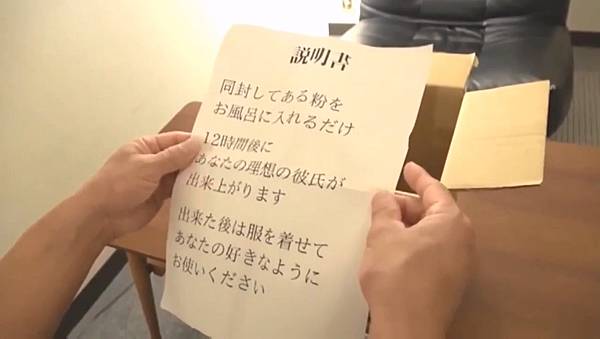 説明書
同封してある粉を
お風呂に入れるだけ
12時間後に
あなたの理想の彼氏が
出来上がります
出来た後は服を着せて
あなたの好きなように
お使いください